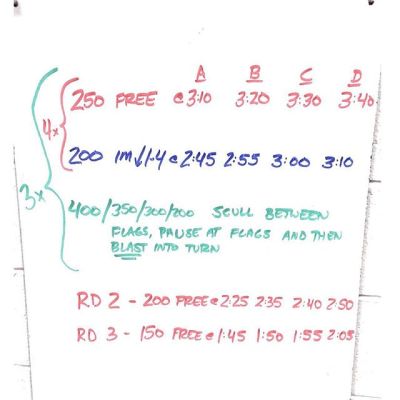 A B C D
4x 250 FREE @ 3:10 3:20 3:30 3:40
200 IM ↓1-4 @ 2:45 2:55 3:00 3:10
3x
400/350/300/200 SCULL BETWEEN
FLAGS, PAUSE AT FLAGS AND THEN
BLAST INTO TURN
RD 2 - 200 FREE @ 2:25 2:35 2:40 2:50
RD 3 - 150 FREE @ 1:45 1:50 1:55 2:05